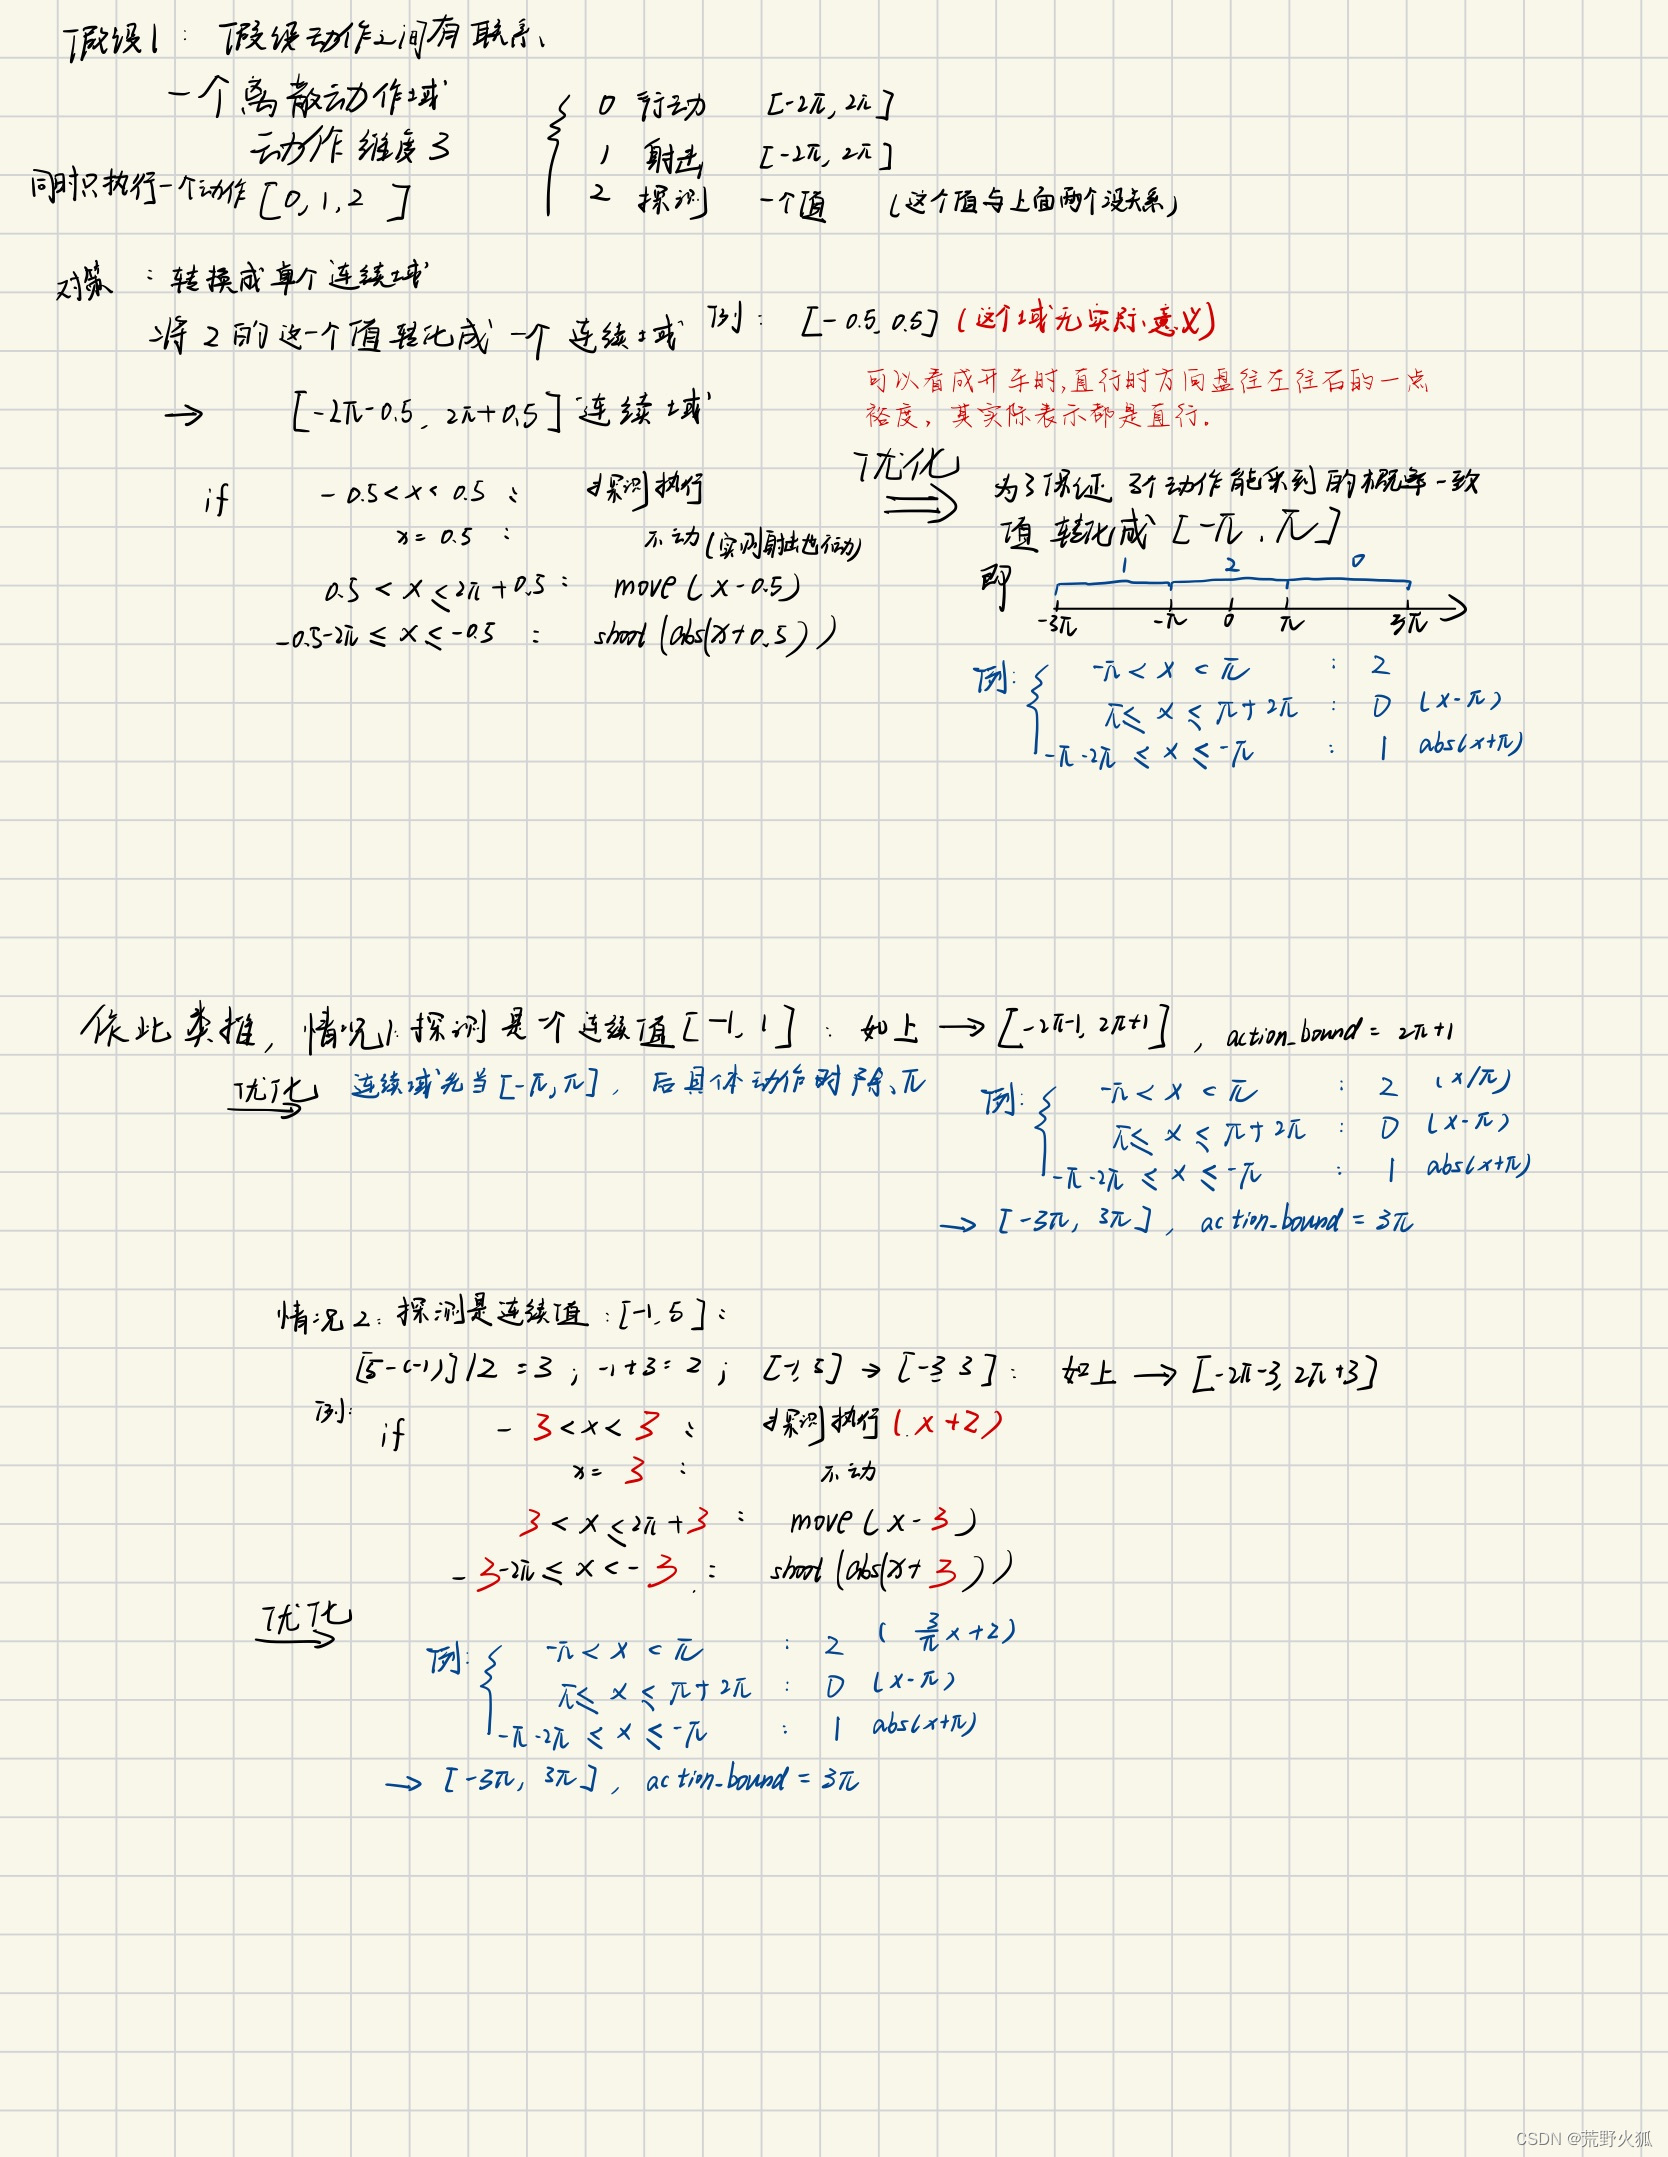 假设1：假设动作之间有联系、
一个离散动作域
动作维度3
同时只执行一个动作 [0, 1, 2 ]
0 行动 [-2π, 2π]
1 射击 [-2π, 2π]
2 探测 一个值 (这个值与上面两个没关系)
对策：转换成单个连续域
将2的这一个值转化成一个连续域 例: [-0.5, 0.5] (这个域无实际意义)
可以看成开车时,直行时方向盘往左往右的一点
裕度，其实际表示都是直行.
→ [-2π-0.5, 2π+0.5] 连续域
if -0.5<x<0.5 : 探测执行
x=0.5 : 不动(实则射击也行动)
0.5<x≤2π+0.5: move(x-0.5)
-0.5-2π≤x≤-0.5 : shoot(abs(x+0.5))
优化 ⇒ 为了保证 3个动作能采到的概率一致
值转化成 [-π, π]
即 1 2 0
-3π -π 0 π 3π
例: -π<x<π : 2
π≤x≤π+2π : 0 (x-π)
-π-2π≤x≤-π : 1 abs(x+π)
依此类推, 情况1: 探测是个连续值[-1, 1] : 如上 → [-2π-1, 2π+1], action_bound = 2π+1
优化 → 连续域先当[-π,π], 后具体动作时再除π
例: -π<x<π : 2 (x/π)
π≤x≤π+2π : 0 (x-π)
-π-2π≤x≤-π : 1 abs(x+π)
→ [-3π, 3π], action_bound = 3π
情况2: 探测是连续值: [-1, 5] :
[5-(-1)]/2 =3 ; -1+3=2 ; [-1,5] → [-3, 3]: 如上 → [-2π-3, 2π+3]
例: if -3<x<3 : 探测执行(x+2)
x=3 : 不动
3<x≤2π+3 : move(x-3)
-3-2π≤x<-3 : shoot(abs(x+3))
优化 →
例: -π<x<π : 2 (3/π x+2)
π≤x≤π+2π : 0 (x-π)
-π-2π≤x≤-π : 1 abs(x+π)
→ [-3π, 3π], action_bound = 3π
CSDN @荒野火狐